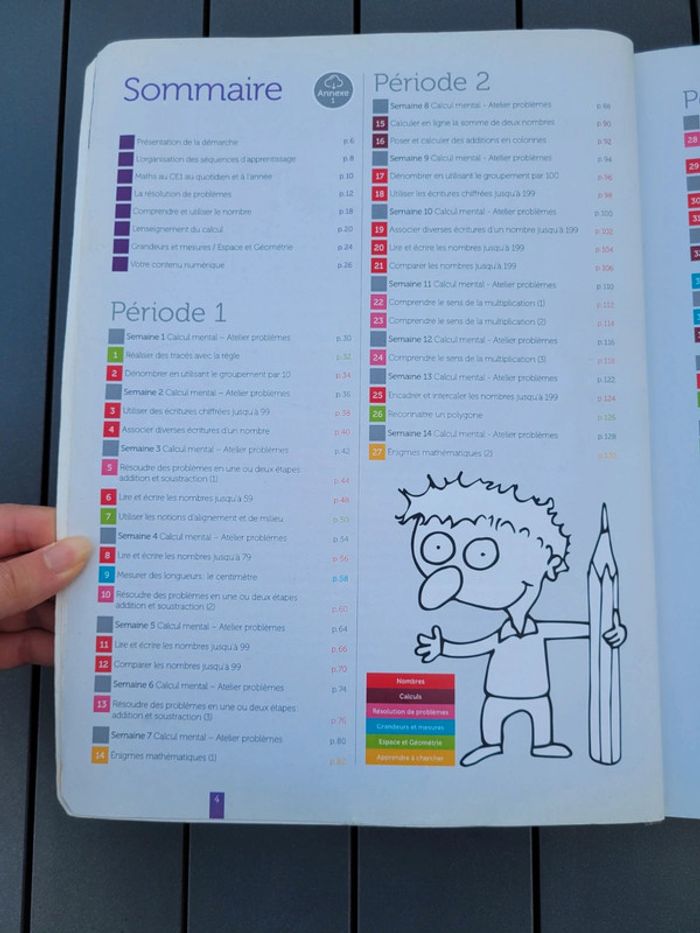 Sommaire
Annexe
1
Présentation de la démarche p.6
L'organisation des séquences d'apprentissage p.8
Maths au CE1 au quotidien et à l'année p.10
La résolution de problèmes p.12
Comprendre et utiliser le nombre p.18
L'enseignement du calcul p.20
Grandeurs et mesures / Espace et Géométrie p.24
Votre contenu numérique p.26
Période 1
Semaine 1 Calcul mental – Atelier problèmes p.30
1 Réaliser des tracés avec la règle p.32
2 Dénombrer en utilisant le groupement par 10 p.34
Semaine 2 Calcul mental – Atelier problèmes p.36
3 Utiliser des écritures chiffrées jusqu'à 99 p.38
4 Associer diverses écritures d'un nombre p.40
Semaine 3 Calcul mental – Atelier problèmes p.42
5 Résoudre des problèmes en une ou deux étapes :
addition et soustraction (1) p.44
6 Lire et écrire les nombres jusqu'à 59 p.48
7 Utiliser les notions d'alignement et de milieu p.50
Semaine 4 Calcul mental – Atelier problèmes p.54
8 Lire et écrire les nombres jusqu'à 79 p.56
9 Mesurer des longueurs : le centimètre p.58
10 Résoudre des problèmes en une ou deux étapes :
addition et soustraction (2) p.60
Semaine 5 Calcul mental – Atelier problèmes p.64
11 Lire et écrire les nombres jusqu'à 99 p.66
12 Comparer les nombres jusqu'à 99 p.70
Semaine 6 Calcul mental – Atelier problèmes p.74
13 Résoudre des problèmes en une ou deux étapes :
addition et soustraction (3) p.76
Semaine 7 Calcul mental – Atelier problèmes p.80
14 Énigmes mathématiques (1) p.82
4
Période 2
Semaine 8 Calcul mental - Atelier problèmes p.86
15 Calculer en ligne la somme de deux nombres p.90
16 Poser et calculer des additions en colonnes p.92
Semaine 9 Calcul mental - Atelier problèmes p.94
17 Dénombrer en utilisant le groupement par 100 p.96
18 Utiliser les écritures chiffrées jusqu'à 199 p.98
Semaine 10 Calcul mental - Atelier problèmes p.100
19 Associer diverses écritures d'un nombre jusqu'à 199 p.102
20 Lire et écrire les nombres jusqu'à 199 p.104
21 Comparer les nombres jusqu'à 199 p.106
Semaine 11 Calcul mental - Atelier problèmes p.110
22 Comprendre le sens de la multiplication (1) p.112
23 Comprendre le sens de la multiplication (2) p.114
Semaine 12 Calcul mental - Atelier problèmes p.116
24 Comprendre le sens de la multiplication (3) p.118
Semaine 13 Calcul mental - Atelier problèmes p.122
25 Encadrer et intercaler les nombres jusqu'à 199 p.124
26 Reconnaître un polygone p.126
Semaine 14 Calcul mental - Atelier problèmes p.128
27 Énigmes mathématiques (2) p.130
Nombres
Calculs
Résolution de problèmes
Grandeurs et mesures
Espace et Géométrie
Apprendre à chercher
28
29
30
31